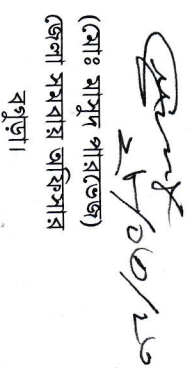 ২৮/০৬/২০
(মোঃ মাসুদ পারভেজ)
জেলা সমবায় অফিসার
বগুড়া।